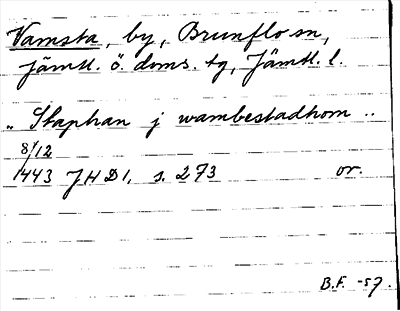 Vamsta, by, Brunflo sn,
Jämtl. ö. doms. tg, Jämtl. l.
„ Staphan j wambestadhom ..
8/12
1443 JHD1, s. 273 or.
B.F. -57.